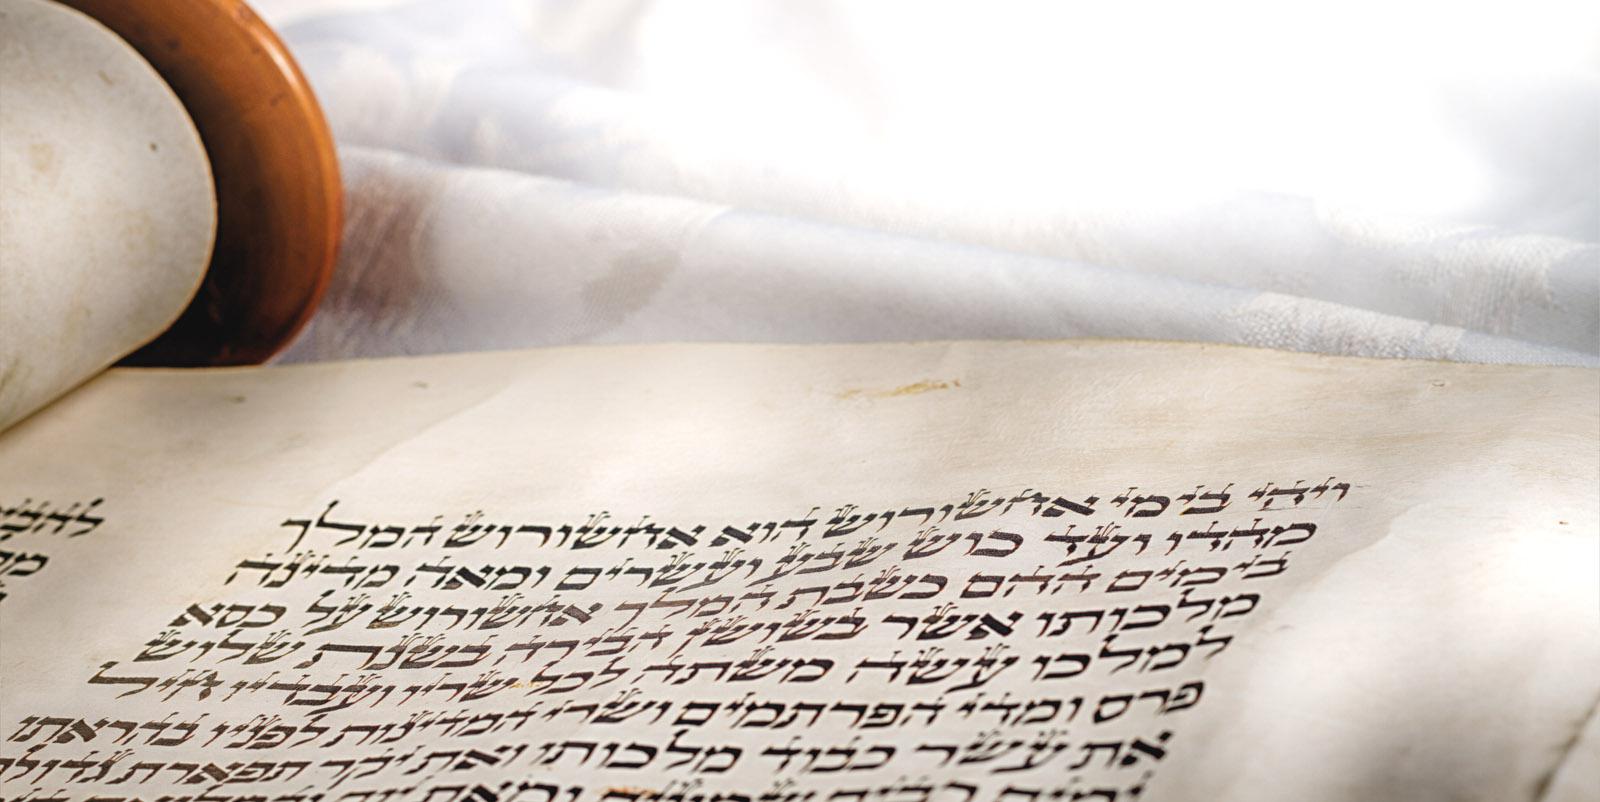 ויהי בימי אחשורוש הוא אחשורוש המלך
מהדו ועד כוש שבע ועשרים ומאה מדינה
בימים ההם כשבת המלך אחשורוש על כסא
מלכותו אשר בשושן הבירה בשנת שלוש
למלכו עשה משתה לכל שריו ועבדיו חיל
פרס ומדי הפרתמים ושרי המדינות לפניו בהראתו
את עשר כבוד מלכותו ואת יקר תפארת גדולתו